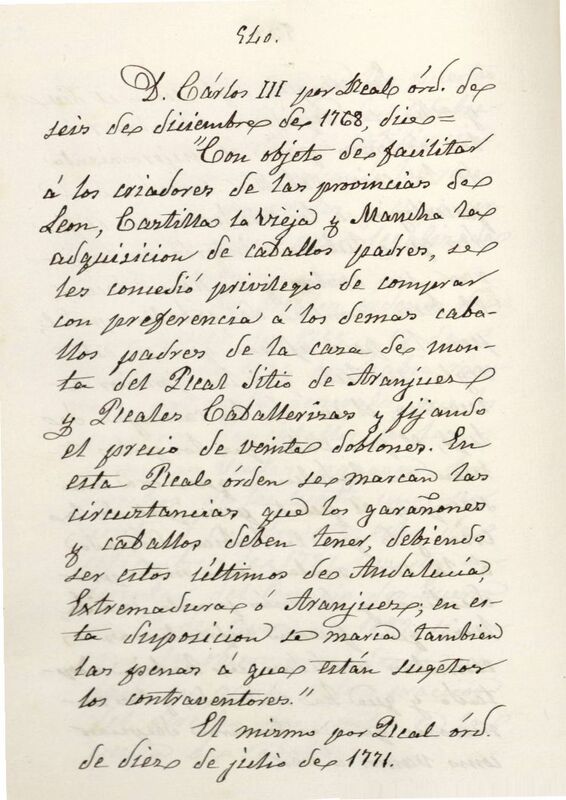 540.
D. Cárlos III por Real órd. de
seis de diciembre de 1768, dice=
"Con objeto de facilitar
á los criadores de las provincias de
Leon, Castilla la vieja y Mancha la
adquisicion de caballos padres, se
les concedió privilegio de comprar
con preferencia á los demas caba-
llos padres de la casa de mon-
ta del Real Sitio de Aranjuez
y Reales Caballerizas y fijando
el precio de veinte doblones. En
esta Real órden se marcan las
circustancias que los garañones
y caballos deben tener, debiendo
ser estos últimos de Andalucía,
Extremadura ó Aranjuez; en es-
ta disposicion se marca tambien
las penas á que están sugetos
los contraventores."
El mismo por Real órd.
de diez de julio de 1771.